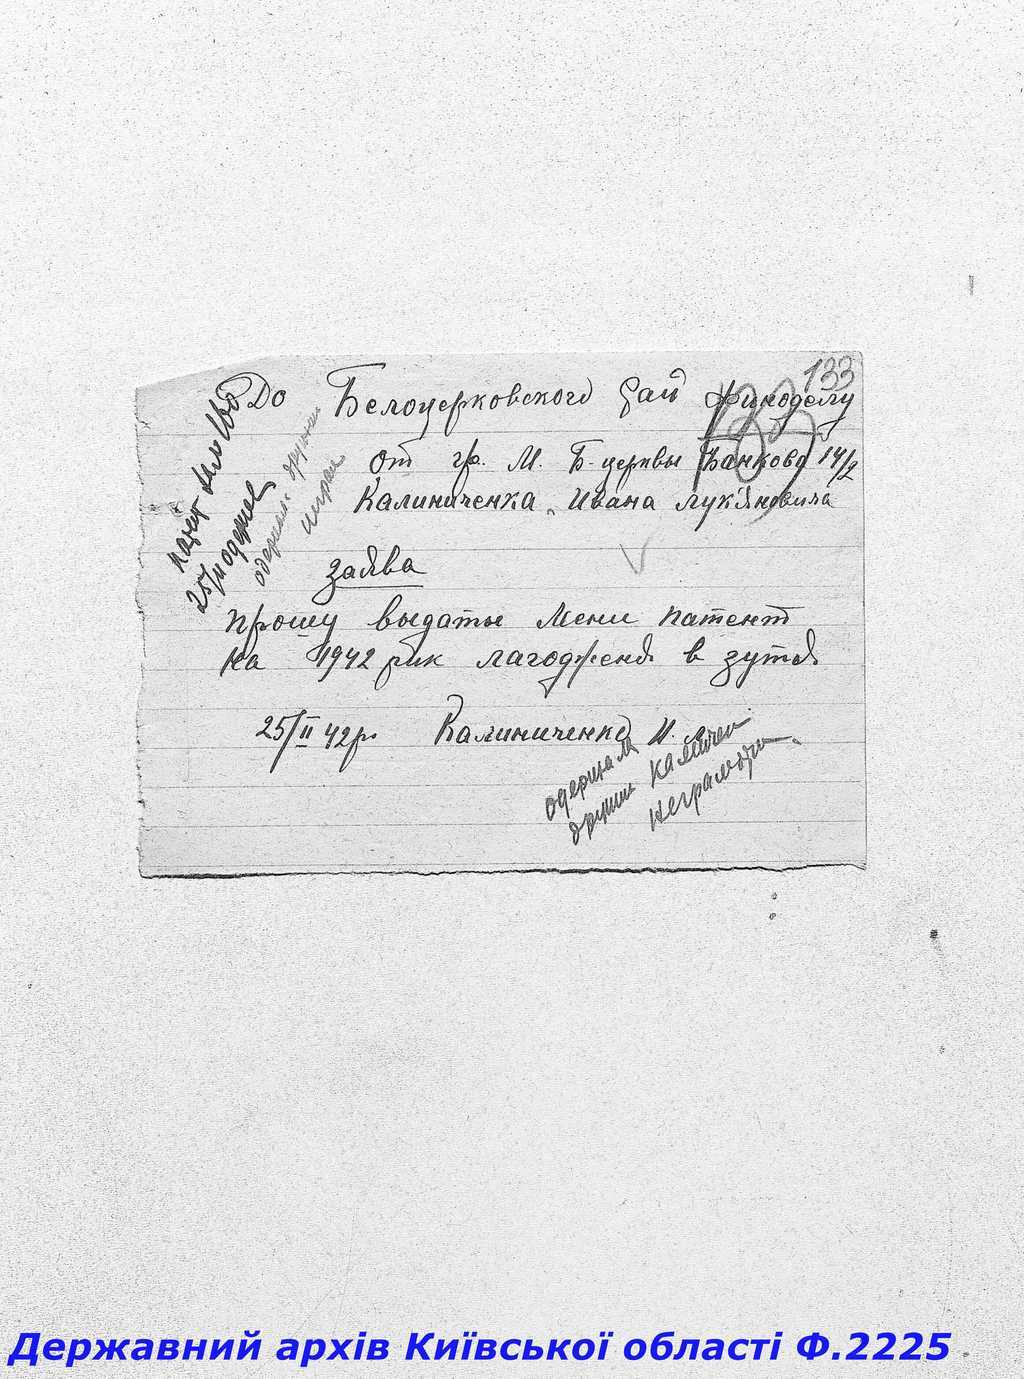 133
До Белоцерковского рай финоделу
От гр. М. Б-церквы Банкова 14/2
Калиниченка Ивана лук'яновича
Заява
прошу выдаты мени патент
на 1942 рик лагодженя в зутя
25/II 42 р. Калиниченко И.
одержала
дружина
неграмотн
патент
25/II одержав
Державний архів Київської області Ф.2225